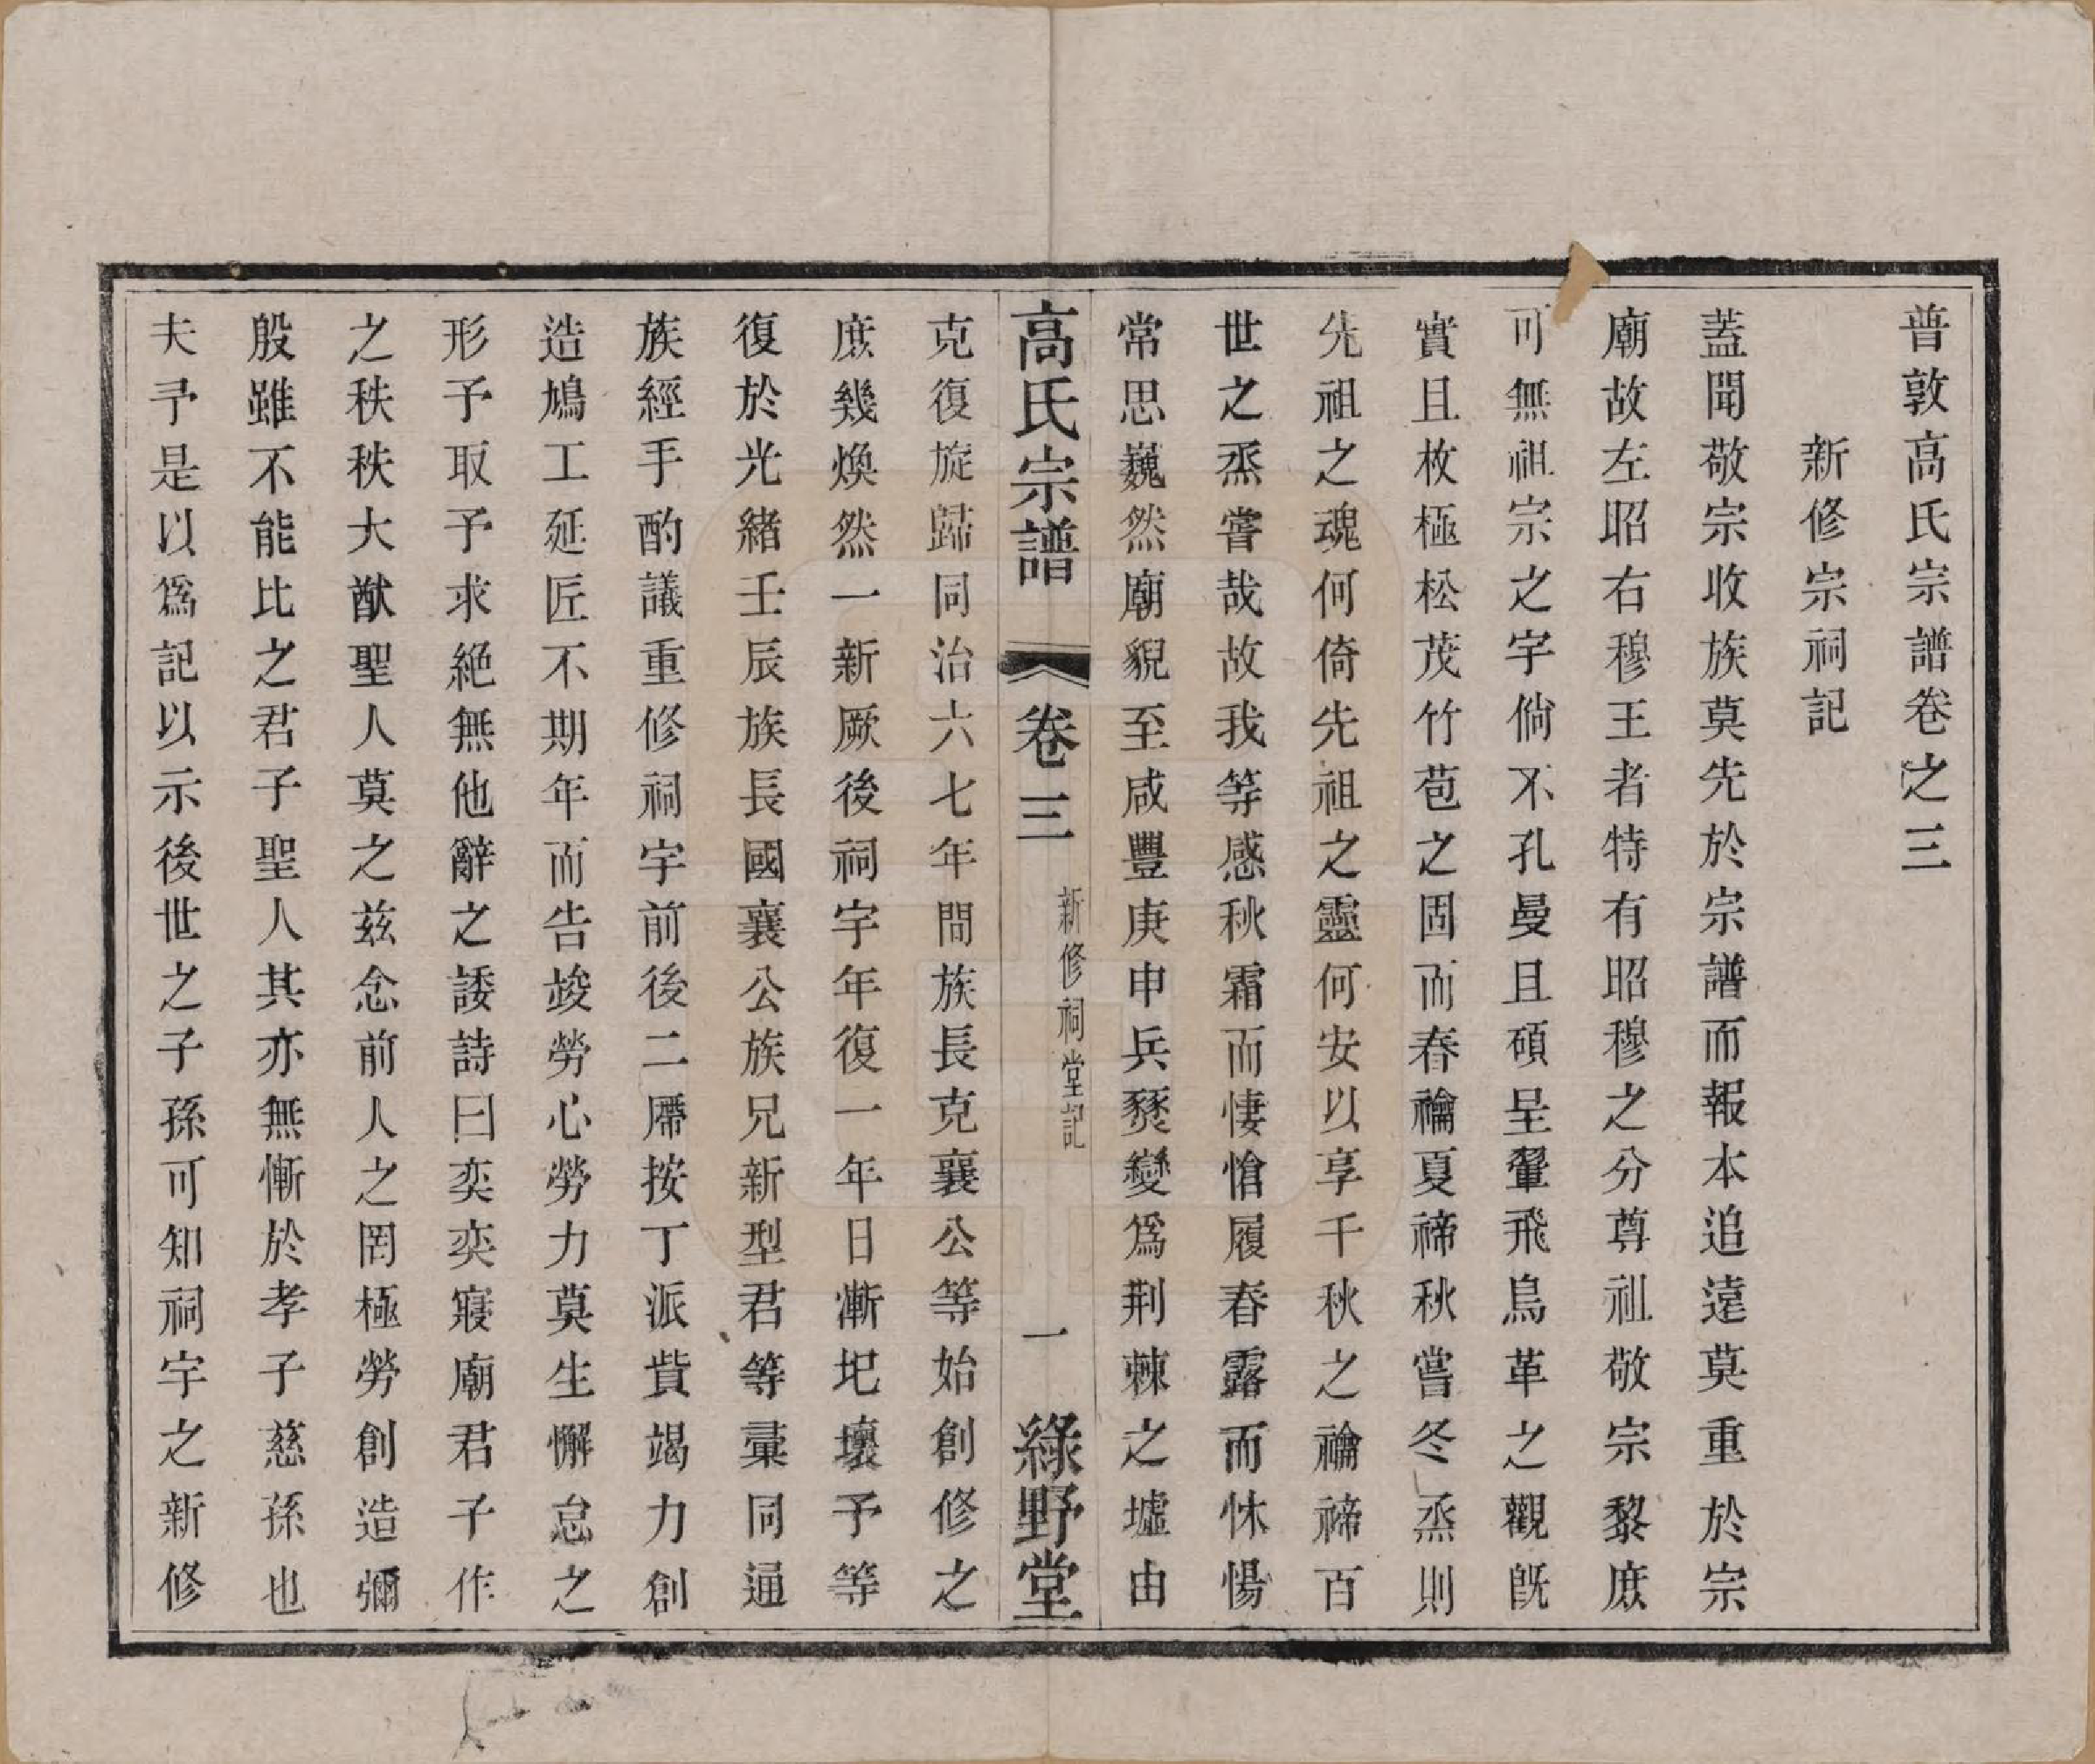 普敦高氏宗譜卷之三
新修宗祠記
蓋聞敬宗收族莫先於宗譜而報本追遠莫重於宗
廟故左昭右穆王者特有昭穆之分尊祖敬宗黎庶
可無祖宗之宇倘不孔曼且碩呈翬飛鳥革之觀旣
實且枚極松茂竹苞之固而春禴夏禘秋嘗冬烝則
先祖之魂何倚先祖之靈何安以享千秋之禴禘百
世之烝嘗哉故我等感秋霜而悽愴履春露而怵惕
常思巍然廟貌至咸豐庚申兵燹變爲荆棘之墟由
高氏宗譜 卷三 新修祠堂記 一 綠野堂
克復旋歸同治六七年間族長克襄公等始創修之
庶幾煥然一新厥後祠宇年復一年日漸圮壞予等
復於光緒壬辰族長國襄公族兄新型君等彙同通
族經手酌議重修祠宇前後二厝按丁派貲竭力創
造鳩工延匠不期年而告竣勞心勞力莫生懈怠之
形予取予求絕無他辭之諉詩曰奕奕寢廟君子作
之秩秩大猷聖人莫之兹念前人之罔極勞創造彌
殷雖不能比之君子聖人其亦無慚於孝子慈孫也
夫予是以爲記以示後世之子孫可知祠宇之新修